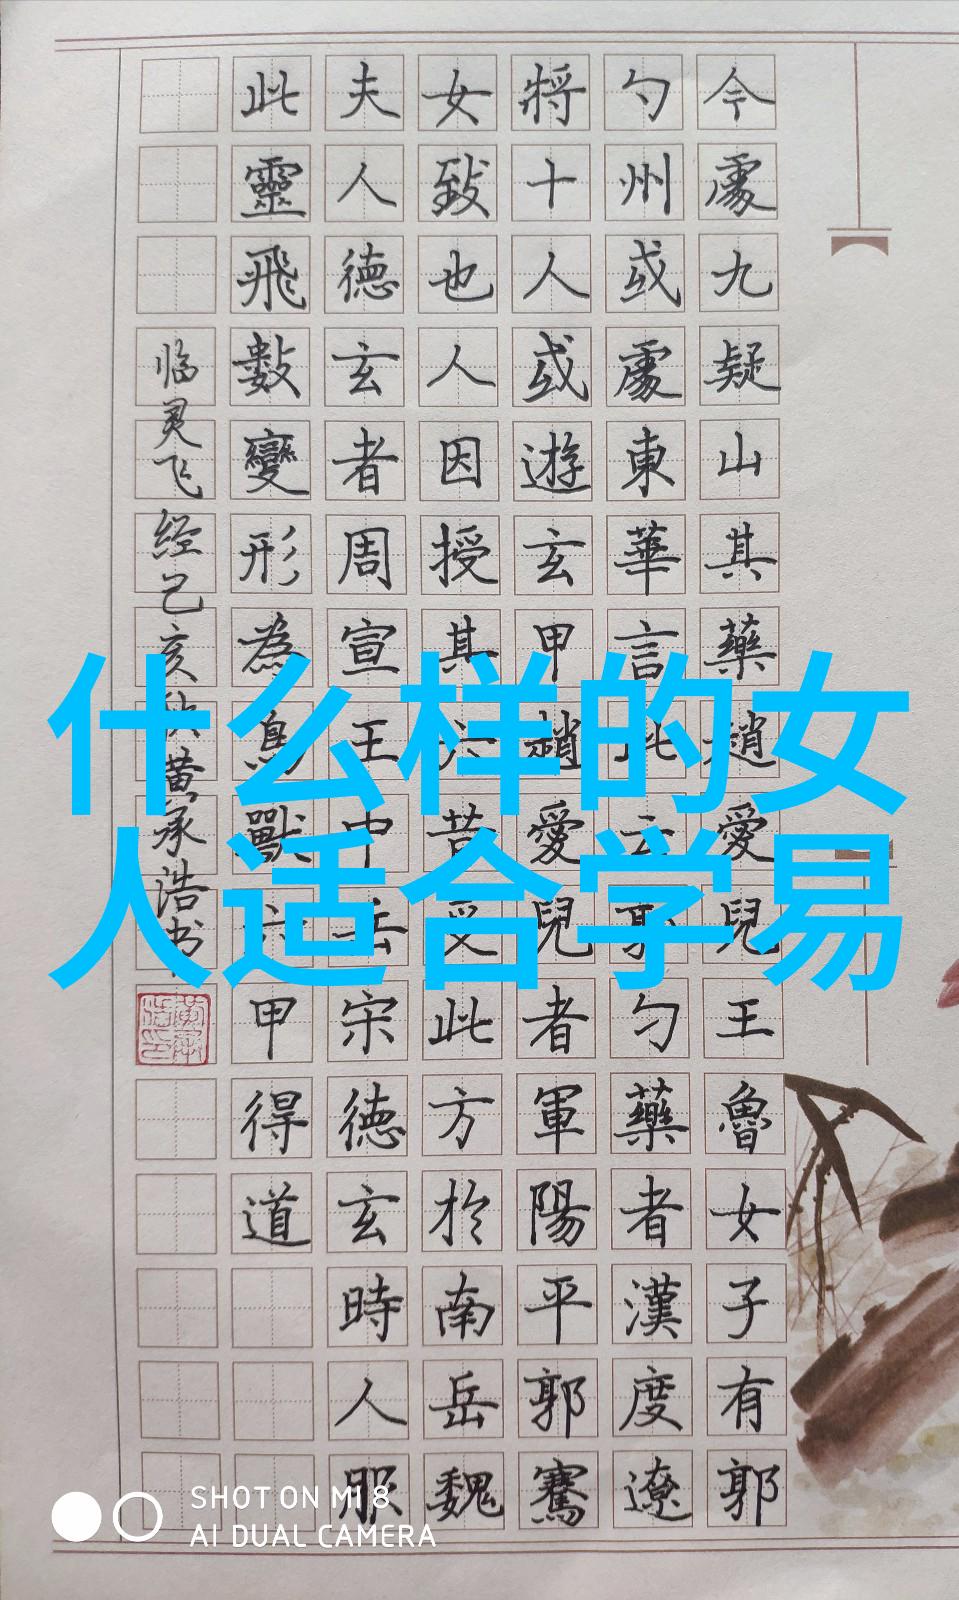 什么样的女
人适合学易
今處九疑山其藥趙愛兒王魯女子有郭
勺州或處東華言此云耶勺藥者漢度遼
將十人或遊玄甲趙愛兒者軍陽平郭騫
女致也人因授其六昔受此方於南岳魏
夫人德玄者周宣王中岳宋德玄時人服
此靈飛數變形為鳥獸六甲得道
临灵飞经己亥秋黄承浩书
SHOT ON MI 8
AI DUAL CAMERA